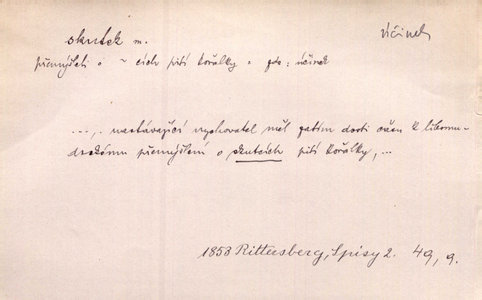 skutek m. účinek
přemýšleti o ~ cích pití kořalky = zde: účinek
..., nastávající vychovatel měl zatím dosti času k libomu-
drckému přemýšlení o skutcích pití kořalky, ...
1853 Rittersberg, Spisy 2. 49, 9.